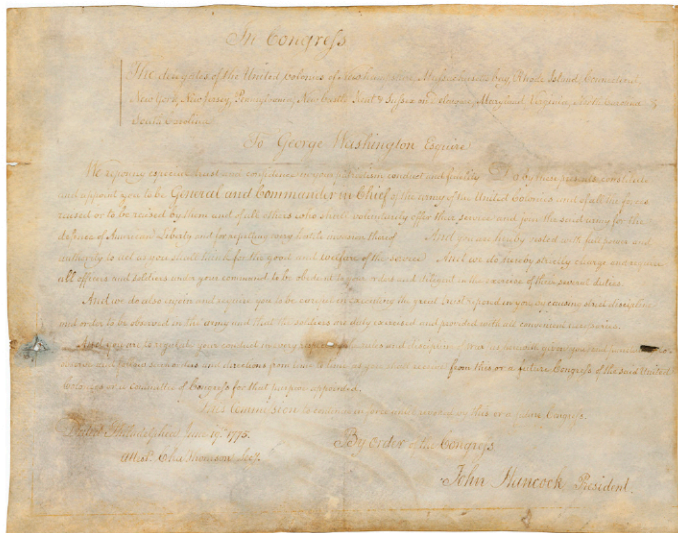 In Congress
The delegates of the United Colonies of New hampshire, Massachusetts bay, Rhode Island, Connecticut,
New York, New Jersey, Pennsylvania, New Castle Kent & Sussex on Delaware, Maryland, Virginia, North Carolina &
South Carolina
To George Washington Esquire
We reposing especial trust and confidence in your conduct and fidelity Do by these presents constitute
and appoint you to be General and Commander in Chief of the army of the United Colonies and of all the forces
raised or to be raised by them and of all others who shall voluntarily offer their service and join the said army for the
defence of American Liberty and for repelling every hostile invasion thereof And you are hereby vested with full power and
authority to act as you shall think for the good and Welfare of the service. And we do hereby strictly charge and require
all officers and soldiers under your command to be obedient to your orders and diligent in the exercise of their several duties.
And we do also enjoin and require you to be careful in executing the great trust reposed in you, by causing strict discipline
and order to be observed in the army and that the soldiers are duly exercised and provided with all convenient necessaries.
And you are to regulate your conduct in every respect by the rules and discipline of war
and directions from time to time as you shall receive from this or a future Congress of the said United
Colonies or a committee of Congress for that purpose appointed.
This Commission to continue in force until revoked by this or a future Congress.
Dated Philadelphia June 19th 1775.
By Order of the Congress
Attest. Cha Thomson Secy.
John Hancock President